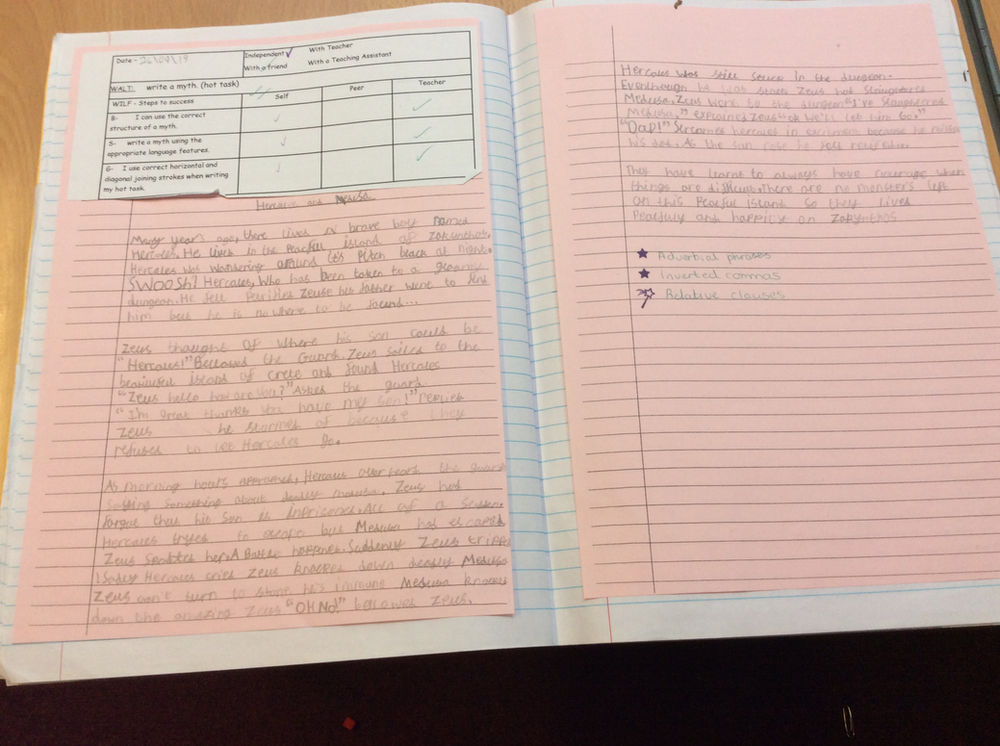 Date - 26/09/19
Independent ✓ With Teacher
With a friend With a Teaching Assistant
WALT: write a myth. (hot task)
WILF - Steps to success Self Peer Teacher
B- I can use the correct
structure of a myth.
S- write a myth using the
appropriate language features.
G- I use correct horizontal and
diagonal joining strokes when writing
my hot task.
Hercules and Medusa
Many years ago, there lives a brave boy named
Hercules. He lives in the Peaceful island of Zakynthos.
Hercules was wandering around it's Pitch black at night.
SWOOSH! Hercules, Who has been taken to a gloomy
dungeon. He fell his father went to find
him but he is nowhere to be found...
Zeus thought of where his son could be
"Hercules!" Bellowed the Guard. Zeus sailed to the
island of crete and found Hercules
"Zeus hello how are you?" Asked the guard
"I'm great thanks you have my son!" replied
Zeus he stormed of because they
refused to let Hercules go.
As morning hours approached, Hercules over heard the guard
saying something about deadly medusa. Zeus had
forgot that his son is inprisoned. All of a sudden
Hercules tryes to escape but Medusa had escaped
Zeus her. A Battle happened. Suddenly Zeus tripped
! Sadly Hercules cried Zeus knocked down deadly Medusa
Zeus can't turn to stone he's immune Medusa knocked
down the amazing Zeus "OH No!" bellowed Zeus.
Hercules was still in the dungeon.
Eventhough he was Zeus had
Medusa. Zeus went to the dungeon "I've
Medusa," explained Zeus "ok We'll let him Go."
"DaD!" Screamed hercules in excitment because he
his dad. As the sun rose he
They have learnt to always have when
things are difficult. There are no monsters left
on this Peaceful Island So they lived
Peacfully and happily on Zakynthos.
★ Adverbial phrases
★ Inverted commas
Relative clauses